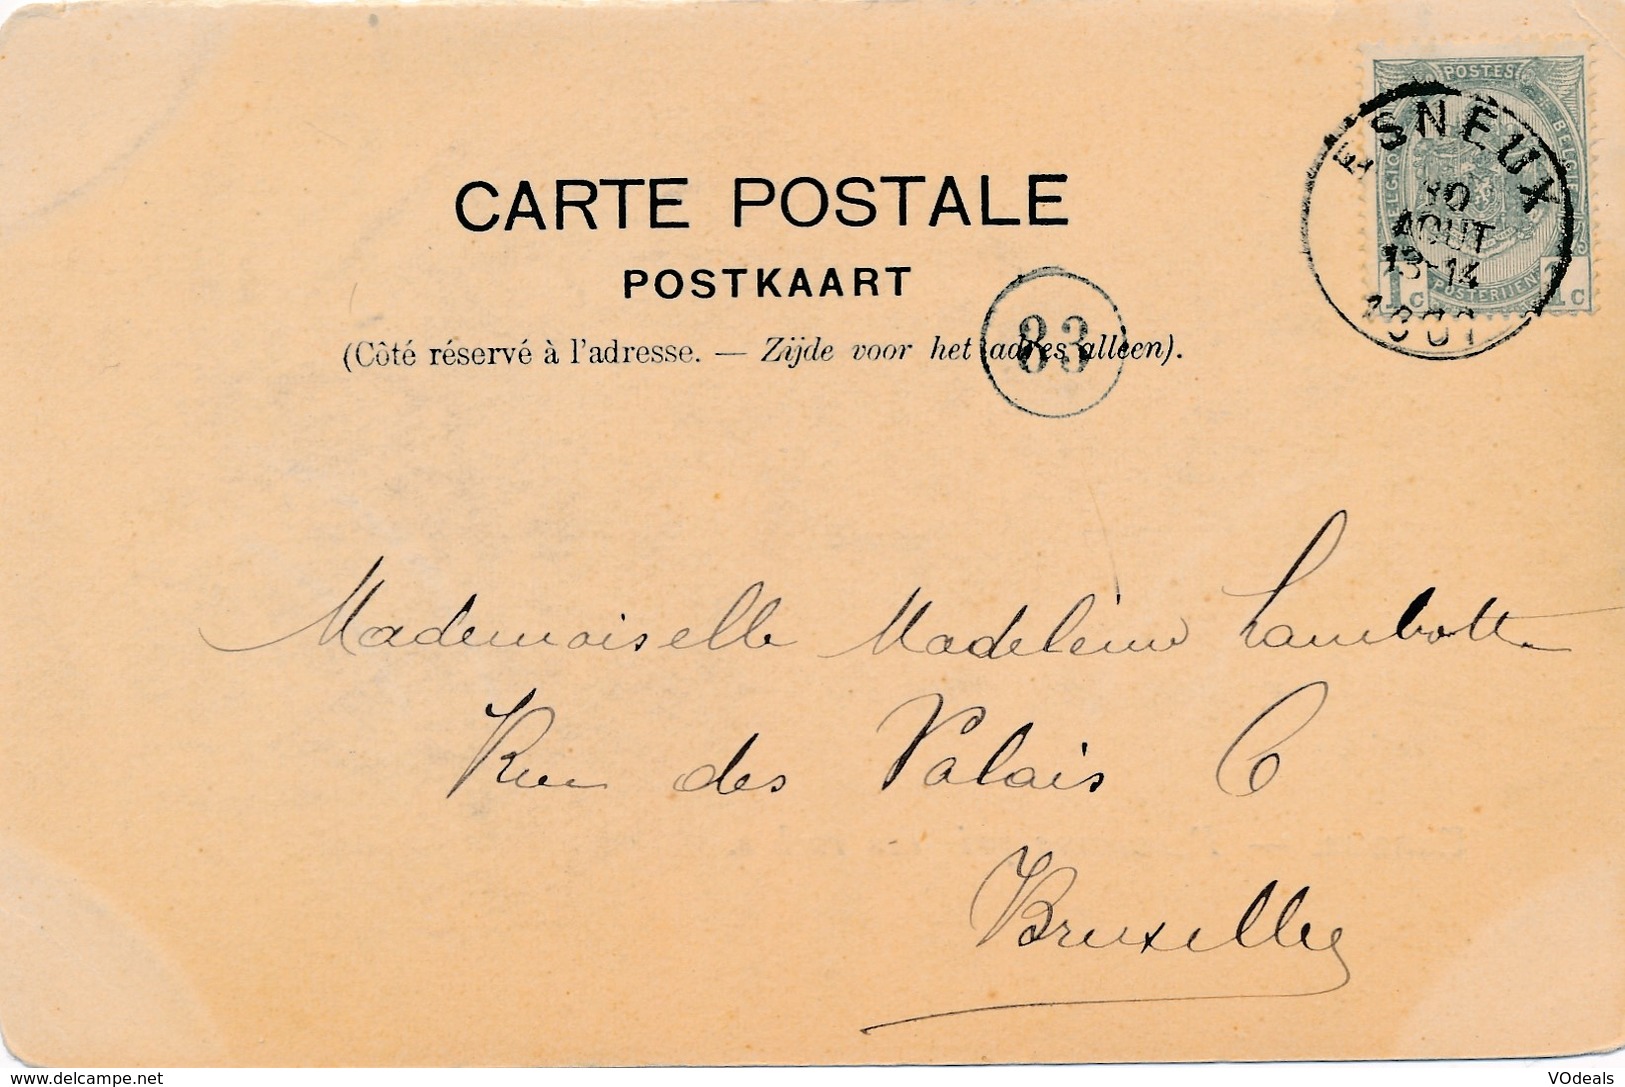 POSTES
BELGIQUE
BELGIE
POSTERIJEN
1c 1c
ESNEUX
30
AOUT
13-14
CARTE POSTALE
POSTKAART
83
(Côté réservé à l'adresse. — Zijde voor het adres alleen).
Mademoiselle Madeleine Lambotte
Rue des Palais 6
Bruxelles
www.delcampe.net
VOdeals